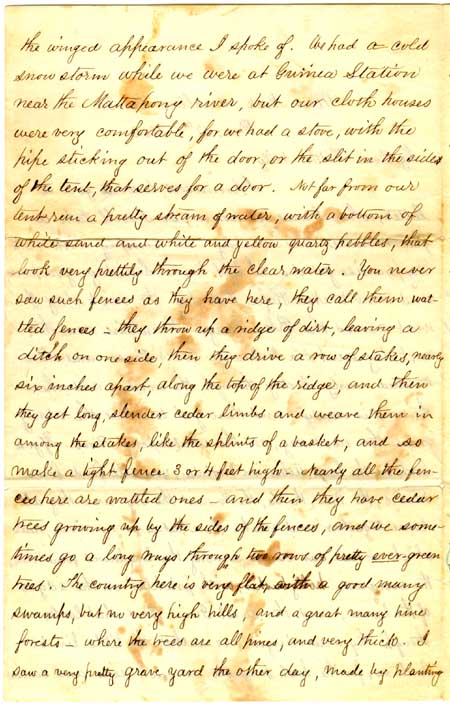 the winged appearance I spoke of. We had a cold
snow storm while we were at Guinea Station
near the Mattapony river, but our cloth houses
were very comfortable, for we had a stove, with the
pipe sticking out of the door, or the slit in the sides
of the tent, that serves for a door. Not far from our
tent run a pretty stream of water, with a bottom of
white sand and white and yellow quartz pebbles, that
look very prettily through the clear water. You never
saw such fences as they have here, they call them wat-
tled fences - they throw up a ridge of dirt, leaving a
ditch on one side, then they drive a row of stakes, nearly
six inches apart, along the top of the ridge, and then
they get long, slender cedar limbs and weave them in
among the stakes, like the splints of a basket, and so
make a tight fence 3 or 4 feet high - Nearly all the fen-
ces here are wattled ones - and then they have cedar
trees growing up by the sides of the fences, and we some-
times go a long ways through two rows of pretty ever-green
trees. The country here is very flat, with a good many
swamps, but no very high hills, and a great many pine
forests - where the trees are all pines, and very thick. I
saw a very pretty grave yard the other day, made by planting